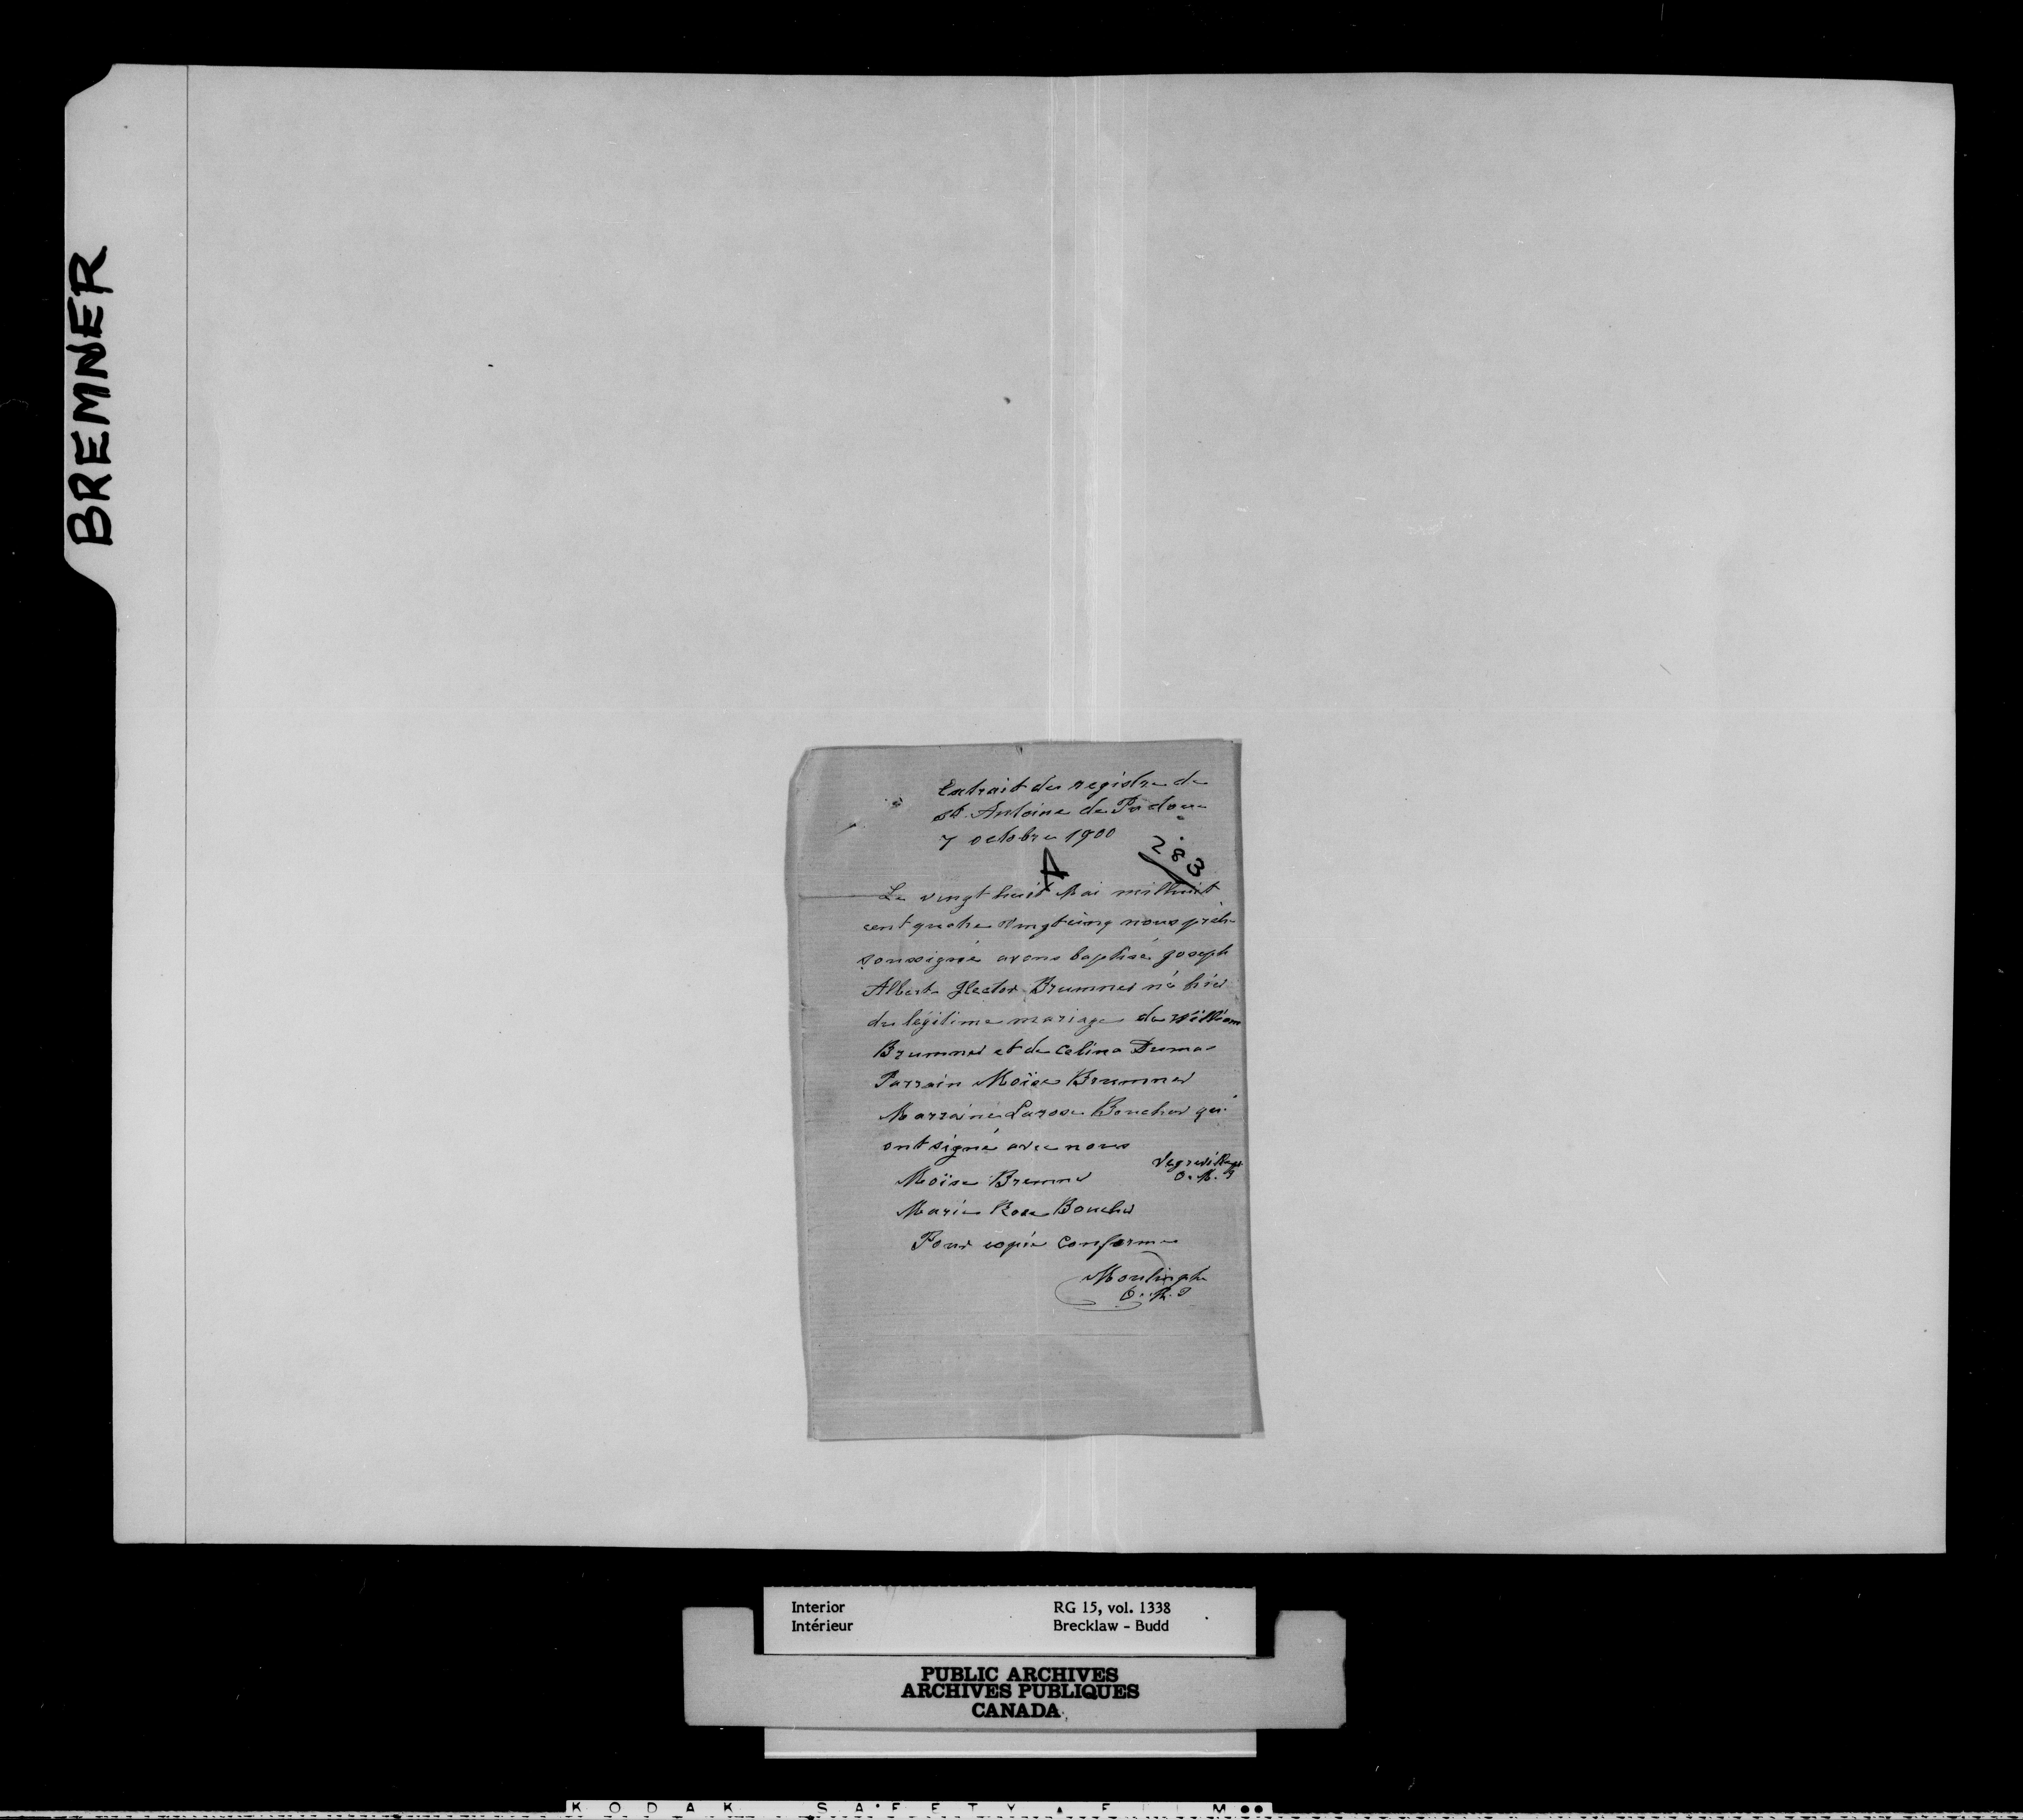 BREMNER
Extrait des registre de
St. Antoine de Padoue
7 octobre 1900
283
A
Le vingt huit Mai mil huit
cent quatre vingt cinq nous prêtre
soussigné avons baptisé Joseph
Albert Hector Brumner né hier
du légitime mariage de William
Brumner et de Celina Dumas
Parrain Moïse Brumner
Marraine Larose Boucher qui
ont signé avec nous
Vegreville
O.M.I
Moïse Bremner
Marie Rose Boucher
Pour copie conforme
O.M.I
Interior
Intérieur
RG 15, vol. 1338
Brecklaw - Budd
PUBLIC ARCHIVES
ARCHIVES PUBLIQUES
CANADA
KODAK SAFETY FILM